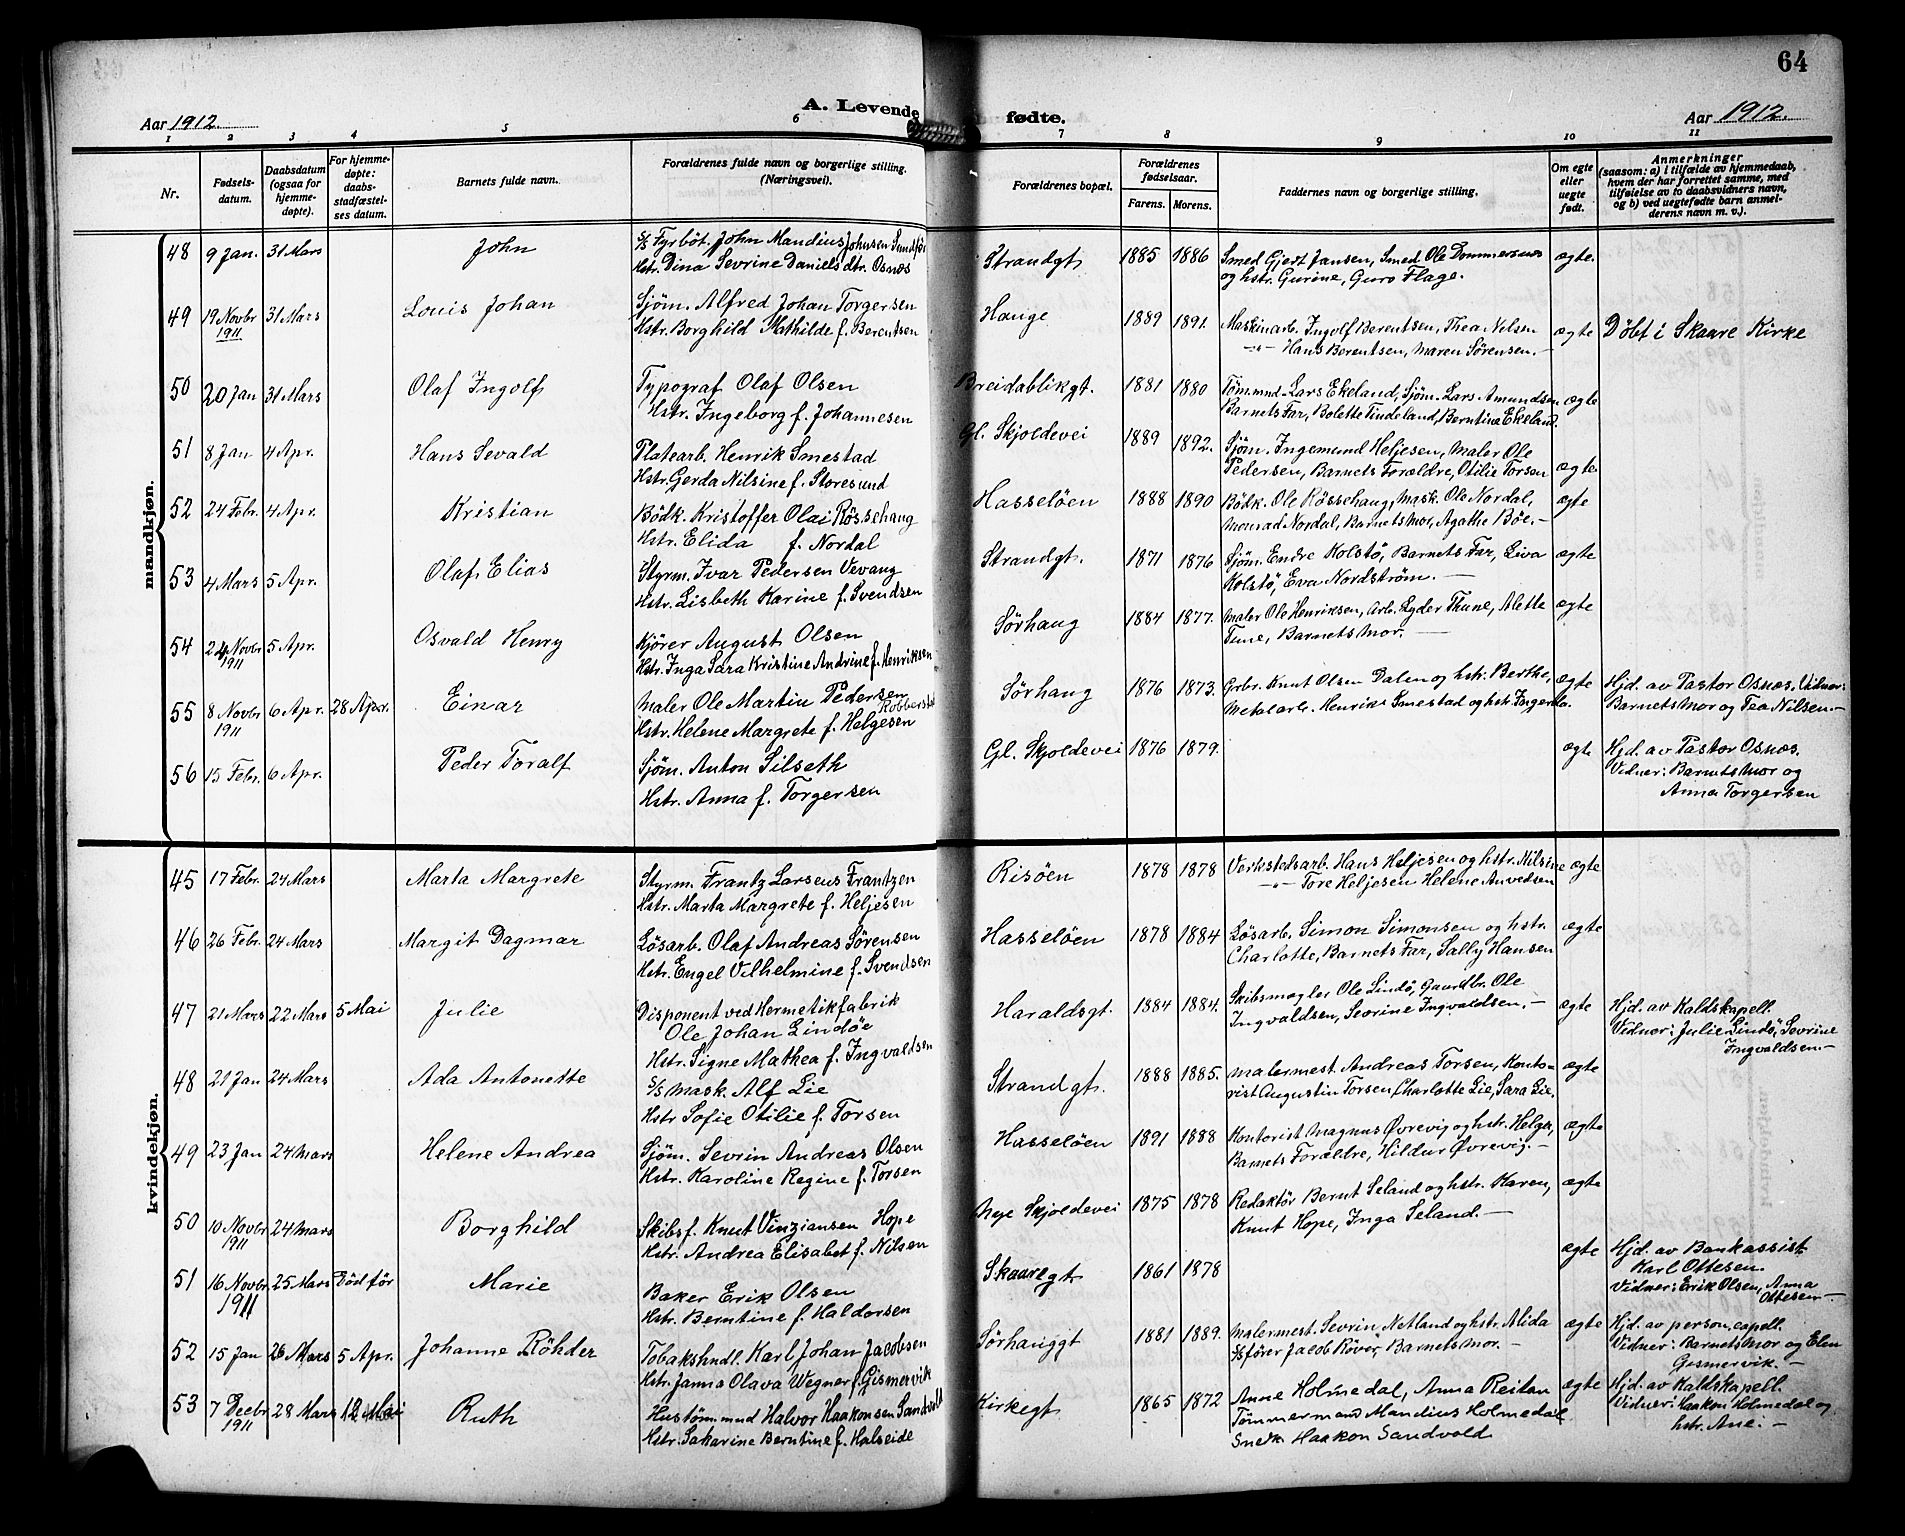 64
Aar 1912.
A. Levende fødte.
Aar 1912.
1 2 3 4 5 6 7 8 9 10 11
Nr.
Fødsels-
datum.
Daabsdatum
(ogsaa for
hjemme-
døpte).
For hjemme-
døpte:
daabs-
stadfæstel-
ses datum.
Barnets fulde navn.
Forældrenes fulde navn og borgerlige stilling.
(Næringsvei).
Forældrenes bopæl.
Forældrenes
fødselsaar.
Farens. Morens.
Faddernes navn og borgerlige stilling.
Om egte
eller
uegte
født.
Anmerkninger
(saasom: a) i tilfælde av hjemmedaab,
hvem der har forrettet samme, med
tilføielse av to daabsvidners navn,
og b) ved uegtefødte barn anmel-
derens navn m. v.).
mandkjøn.
48 9 Jan. 31 Mars John
S/S Fyrböt. John Mandius Johnsen
Hstr. Dina Sevrine Daniels dtr. Osnæs
Strandgt 1885 1886
Smed Gjert Jansen, Smed Ole Dommersnæs
og hstr. Gurine, Guro Flage.
ægte.
49 19 Novbr 1911 31 Mars Louis Johan
Sjöm. Alfred Johan Torgersen
Hstr. Borghild Mathilde f. Berentsen
Hauge 1889 1891.
Maskinarb. Ingolf Berentsen, Thea Nilsen
-"- Hans Berentsen, Maren Sörensen.-
ægte Döbt i Skaare Kirke
50 20 Jan 31 Mars Olaf Ingolf
Typograf Olaf Olsen
Hstr. Ingeborg f. Johannesen
Breidablikgt. 1881 1880
Tömmnd. Lars Ekeland, Sjöm. Lars Amundsen
Barnets Far, Bolette Tindeland, Berntine Ekeland.
ægte
51 8 Jan 4 Apr. Hans Sevald
Platearb. Henrik Smestad
Hstr. Gerda Nilsine f. Storesund
Gl. Skjoldevei 1889 1892.
Sjöm. Ingemund Heljesen, Maler Ole
Pedersen, Barnets Forældre, Otilie Torsen
ægte
52 24 Febr. 4 Apr. Kristian
Bödk. Kristoffer Olai Rössehaug
Hstr. Elida f. Nordal
Hasselöen 1888 1890
Bödk. Ole Rössehaug, Mask. Ole Nordal,
Monrad Nordal, Barnets Mor, Agathe Böe.-
ægte
53 4 Mars 5 Apr. Olaf Elias
Styrm. Ivar Pedersen Vevang
Hstr. Lisbeth Karine f. Svendsen
Strandgt. 1871 1876
Sjöm. Endre Kolstö, Barnets Far, Liva
Kolstö, Eva Nordström.-
ægte
54 24 Novbr 1911 5 Apr. Osvald Henry
Kjörer August Olsen
Hstr. Inga Sara Kristine Andrine f. Henriksen
Sörhaug 1884 1877.
Maler Ole Henriksen, Arb. Egder Thune, Alette
Tune, Barnets Mor.-
ægte
55 8 Novbr 1911 6 Apr. 28 Apr. Einar
Maler Ole Martin Pedersen
Hstr. Helene Margrete f. Helgesen
Sörhaug 1876 1873.
Grbr. Knut Olsen Dalen og hstr. Berthe,
Metalarb. Henrik Smestad og hstr.
ægte
Hjd. av Pastor Osnæs. Vidner:
Barnets Mor og Tea Nilsen.-
56 15 Febr. 6 Apr. Peder Toralf
Sjöm. Anton Silseth
Hstr. Anna f. Torgersen
Gl. Skjoldevei 1876 1879.
ægte
Hjd. av Pastor Osnæs.
Vidner: Barnets Mor og
Anna Torgersen
kvindekjøn.
45 17 Febr. 24 Mars Marta Margrete
Styrm. Frantz Larsens Frantzen
Hstr. Marta Margrete f. Heljesen
Risöen 1878 1878
Verkstedsarb. Hans Heljesen og hstr. Nilsine
-"- Tore Heljesen Helene Anvedsen
ægte
46 26 Febr. 24 Mars Margit Dagmar
Lösarb. Olaf Andreas Sörensen
Hstr. Engel Vilhelmine f. Svendsen
Hasselöen 1878 1884
Lösarb. Simon Simonsen og hstr.
Charlotte, Barnets Far, Sally Hansen
ægte
47 21 Mars 22 Mars 5 Mai Julie
Disponent ved Hermetikfabrik
Ole Johan Lindöe
Hstr. Signe Mathea f. Ingvaldsen
Haraldsgt. 1884 1884.
Skibsmægler Ole Lindö, Gaardbr. Ole
Ingvaldsen, Sevrine Ingvaldsen.-
ægte
Hjd. av Kaldskapell.
Vidner: Julie Lindö, Sevrine
Ingvaldsen.-
48 21 Jan 24 Mars Ada Antonette
S/S Mask. Alf Lie
Hstr Sofie Otilie f. Torsen
Strandgt. 1888 1885.
Malermest. Andreas Torsen, Konto-
rist Augustin Torsen, Charlotte Lie, Sara Lie.
ægte
49 23 Jan 24 Mars Helene Andrea
Sjöm. Sevrin Andreas Olsen
Hstr. Karoline Regine f. Torsen
Hasselöen 1891 1888
Kontorist Magnus Øvrevig og hstr. Helga,
Barnets Forældre, Hildur Øvrevig.-
ægte
50 10 Novbr 1911 24 Mars Borghild
Skibsf. Knut Vinziansen Hope
Hstr. Andrea Elisabet f. Nilsen
Nye Skjoldevei 1875 1878
Redaktör Bernt Seland og hstr. Karen,
Knut Hope, Inga Seland.-
ægte
51 16 Novbr. 1911 25 Mars Död för Marie
Baker Erik Olsen
Hstr. Berntine f. Haldorsen
Skaaregt 1861 1878
ægte
Hjd. av Bankassist.
Karl Ottesen.
Vidner: Erik Olsen, Anna
Ottesen-
52 15 Jan 26 Mars 5 Apr. Johanne Röhder
Tobakshndl. Karl Johan Jacobsen
Hstr. Janna Olava Wegner f. Gismervik
Sörhauggt 1881 1889.
Malermest. Sevrin Netland og hstr. Alida
S/sförer Jacob Röver, Barnets Mor.-
ægte
Hjd. av person. capell.
Vidner: Barnets Mor og Elen
Gismervik.-
53 7 Decbr. 1911 28 Mars 12 Mai Ruth
Hustömmnd Halvor Haakonsen Sandvold
Hstr. Sakarine Berntine f. Halseide
Kirkegt 1865 1872
Anne Holmedal, Anna Reitan
Tömmermand Mandius Holmedal
Snedk. Haakon Sandvold
ægte
Hjd. av Kaldskapell.
Vidner: Haakon Holmedal og
hstr. Ane.-